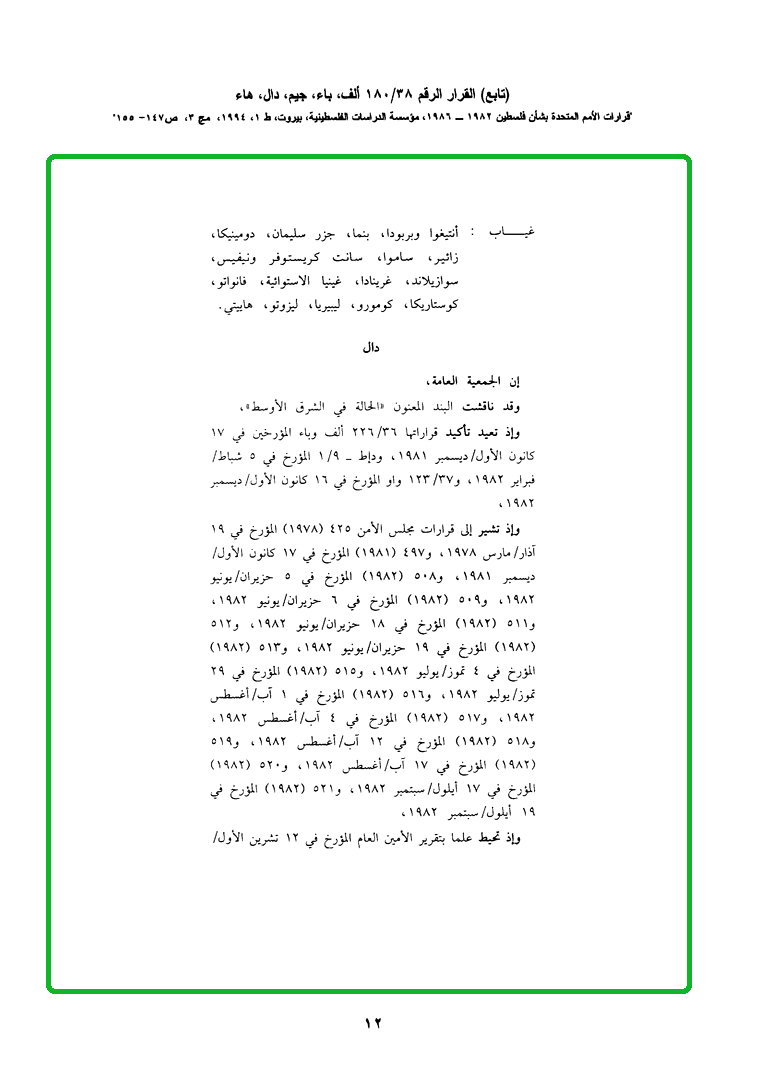 (تابع) القرار الرقم ١٨٠/٣٨ ألف، باء، جيم، دال، هاء
"قرارات الأمم المتحدة بشأن فلسطين ١٩٨٢ ــ ١٩٨٦، مؤسسة الدراسات الفلسطينية، بيروت، ط ١، ١٩٩٤، مج ٣، ص١٤٧– ١٥٥"
غيـــــاب : أنتيغوا وبربودا، بنما، جزر سليمان، دومينيكا،
زائير، ساموا، سانت كريستوفر ونيفيس،
سوازيلاند، غرينادا، غينيا الاستوائية، فانواتو،
كوستاريكا، كومورو، ليبيريا، ليزوتو، هاييتي.
دال
إن الجمعية العامة،
وقد ناقشت البند المعنون «الحالة في الشرق الأوسط»،
وإذ تعيد تأكيد قراراتها ٢٢٦/٣٦ ألف وباء المؤرخين في ١٧
كانون الأول/ديسمبر ١٩٨١، ودإط ـ ١/٩ المؤرخ في ٥ شباط/
فبراير ١٩٨٢، و١٢٣/٣٧ واو المؤرخ في ١٦ كانون الأول/ديسمبر
١٩٨٢،
وإذ تشير إلى قرارات مجلس الأمن ٤٢٥ (١٩٧٨) المؤرخ في ١٩
آذار/مارس ١٩٧٨، و٤٩٧ (١٩٨١) المؤرخ في ١٧ كانون الأول/
ديسمبر ١٩٨١، و٥٠٨ (١٩٨٢) المؤرخ في ٥ حزيران/يونيو
١٩٨٢، و٥٠٩ (١٩٨٢) المؤرخ في ٦ حزيران/يونيو ١٩٨٢،
و٥١١ (١٩٨٢) المؤرخ في ١٨ حزيران/يونيو ١٩٨٢، و٥١٢
(١٩٨٢) المؤرخ في ١٩ حزيران/يونيو ١٩٨٢، و٥١٣ (١٩٨٢)
المؤرخ في ٤ تموز/يوليو ١٩٨٢، و٥١٥ (١٩٨٢) المؤرخ في ٢٩
تموز/يوليو ١٩٨٢، و٥١٦ (١٩٨٢) المؤرخ في ١ آب/أغسطس
١٩٨٢، و٥١٧ (١٩٨٢) المؤرخ في ٤ آب/أغسطس ١٩٨٢،
و٥١٨ (١٩٨٢) المؤرخ في ١٢ آب/أغسطس ١٩٨٢، و٥١٩
(١٩٨٢) المؤرخ في ١٧ آب/أغسطس ١٩٨٢، و٥٢٠ (١٩٨٢)
المؤرخ في ١٧ أيلول/سبتمبر ١٩٨٢، و٥٢١ (١٩٨٢) المؤرخ في
١٩ أيلول/سبتمبر ١٩٨٢،
وإذ تحيط علما بتقرير الأمين العام المؤرخ في ١٢ تشرين الأول/
١٢